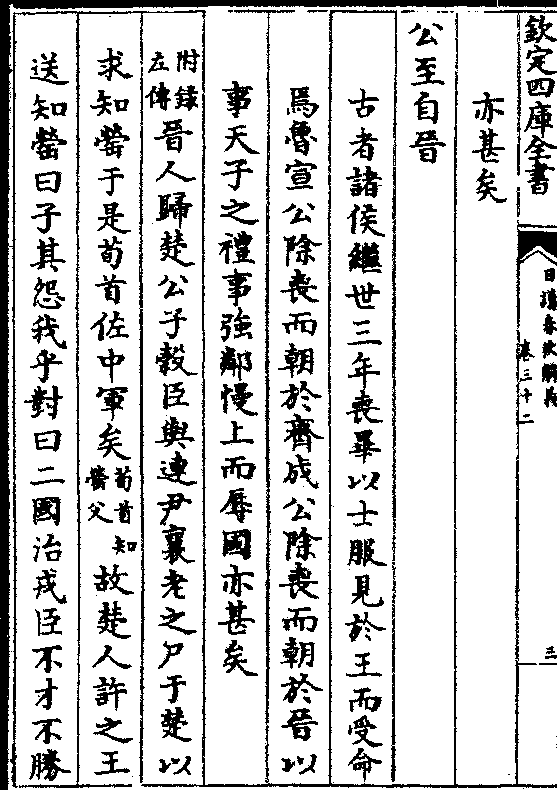 欽定四庫全書
日講春秋解義
卷三十二
三
亦甚矣
公至自晉
古者諸侯繼世三年喪畢以士服見於王而受命
焉魯宣公除喪而朝於齊成公除喪而朝於晉以
事天子之禮事強鄰慢上而辱國亦甚矣
附錄左傳晉人歸楚公子穀臣與連尹襄老之尸于楚以
求知罃于是荀首佐中軍矣荀首知罃父故楚人許之王
送知罃曰子其怨我乎對曰二國治戎臣不才不勝